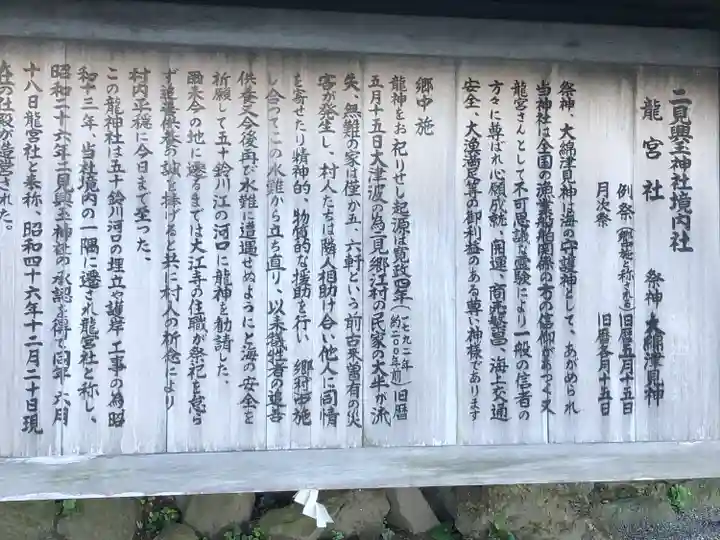 二見興玉神社境内社
龍宮社 祭神 大綿津見神
例祭(郷中施と称される)旧暦五月十五日
月次祭 旧暦各月十五日
祭神、大綿津見神は海の守護神として、あがめられ
当神社は全国の漁業船舶関係の方の信仰があつく又
龍宮さんとして不可思議な霊験により一般の信者の
方々に尊ばれ心願成就、開運、商売繁昌、海上交通
安全、大漁満足等の御利益のある尊い神様であります
郷中施
龍神をお祀りせし起源は寛政四年(一七九二年 約二〇〇年前)旧暦
五月十五日大津波の為二見郷江村の民家の大半が流
失、無難の家は僅か五、六軒という前古未曽有の災
害が発生し、村人たちは隣人相助け合い他人に同情
を寄せたり精神的、物質的な援助を行い 郷村中施
し合つてこの水難から立ち直り、以来犠牲者の追善
供養又今後再び水難に遭遇せぬようにと海の安全を
祈願して五十鈴川江の河口に龍神を勧請した、
爾来今の地に遷るまでは大江寺の住職が祭祀を怠ら
ず追善供養の誠を捧げると共に村人の祈念により
村内平穏に今日まで至つた、
この龍神社は五十鈴川河口の埋立や護岸工事の為昭
和十三年、当社境内の一隅に遷され龍宮社と称し、
昭和二十六年二見興玉神社の承認を得て同年六月
十八日龍宮社と奉称、昭和四十六年十二月二十日現
在の社殿が造営された。